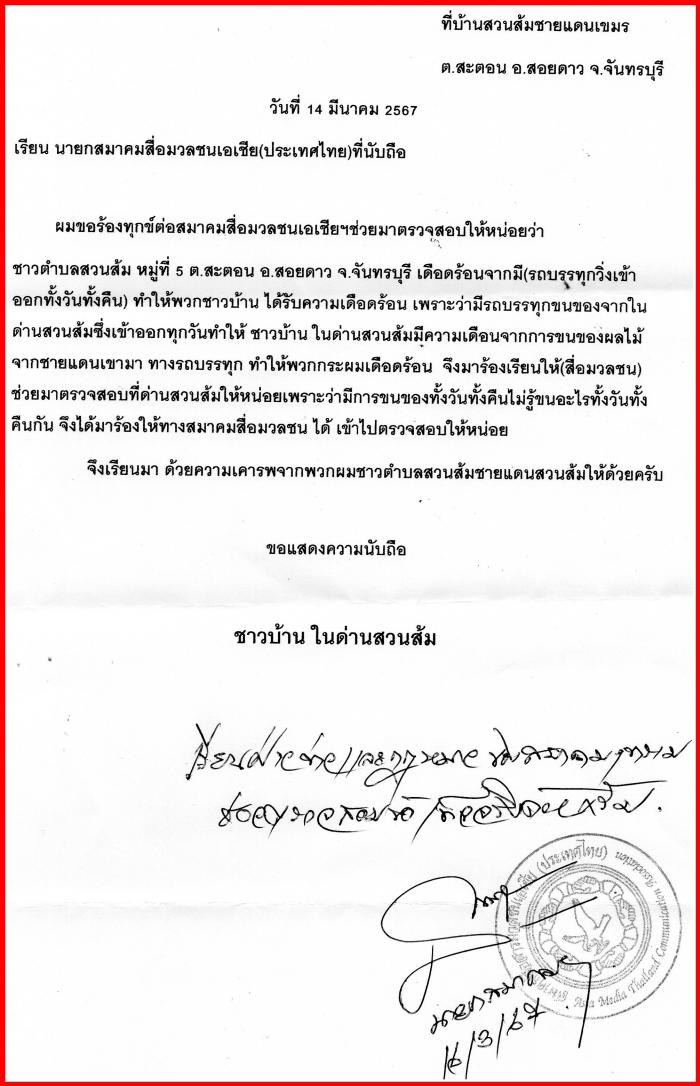 ที่บ้านสวนส้มชายแดนเขมร
ต.สะตอน อ.สอยดาว จ.จันทรบุรี
วันที่ 14 มีนาคม 2567
เรียน นายกสมาคมสื่อมวลชนเอเชีย(ประเทศไทย)ที่นับถือ
ผมขอร้องทุกข์ต่อสมาคมสื่อมวลชนเอเชียฯช่วยมาตรวจสอบให้หน่อยว่า
ชาวตำบลสวนส้ม หมู่ที่ 5 ต.สะตอน อ.สอยดาว จ.จันทรบุรี เดือดร้อนจากมี(รถบรรทุกวิ่งเข้า
ออกทั้งวันทั้งคืน) ทำให้พวกชาวบ้าน ได้รับความเดือดร้อน เพราะว่ามีรถบรรทุกขนของจากใน
ด่านสวนส้มซึ่งเข้าออกทุกวันทำให้ ชาวบ้าน ในด่านสวนส้มมีความเดือนจากการขนของผลไม้
จากชายแดนเขามา ทางรถบรรทุก ทำให้พวกกระผมเดือดร้อน จึงมาร้องเรียนให้(สื่อมวลชน)
ช่วยมาตรวจสอบที่ด่านสวนส้มให้หน่อยเพราะว่ามีการขนของทั้งวันทั้งคืนไม่รู้ขนอะไรทั้งวันทั้ง
คืนกัน จึงได้มาร้องให้ทางสมาคมสื่อมวลชน ได้ เข้าไปตรวจสอบให้หน่อย
จึงเรียนมา ด้วยความเคารพจากพวกผมชาวตำบลสวนส้มชายแดนสวนส้มให้ด้วยครับ
ขอแสดงความนับถือ
ชาวบ้าน ในด่านสวนส้ม
(ประเทศไทย)
Asia Media Thailand Communication
นายกสมาคมฯ
16/3/67